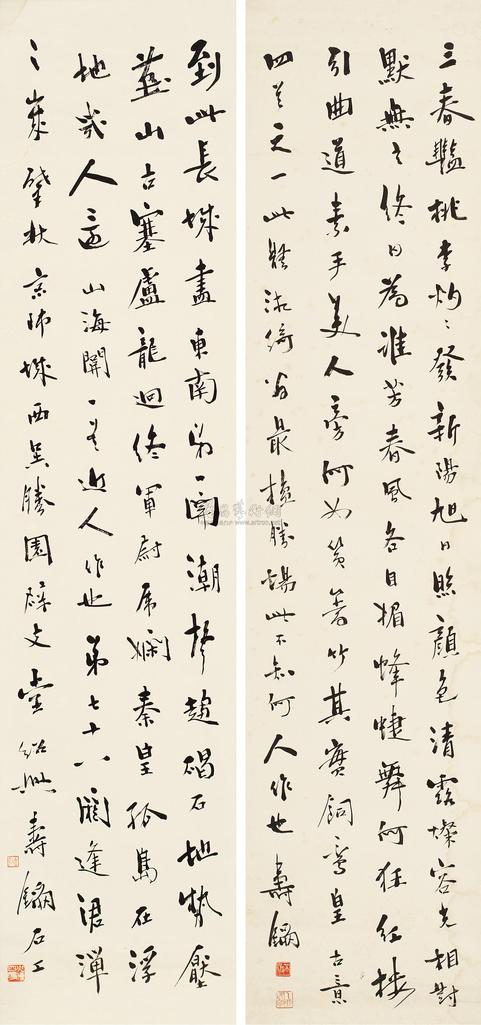 三春艷桃李灼〻發新陽旭日照顏色清露燦容光相對
默無言終日為誰芳春風各自媚蜂蜨舞何狂紅樓
引曲道素手美人旁何如篔簹竹其實飼鸞皇古意
四首之一此體漁倚翁最擅勝場此不知何人作也壽鑈
到此長城盡東南第一關潮聲趨碣石地勢壓
燕山古塞盧龍迴終軍尉虎閑秦皇孤島在浮
地幾人還山海關一首近人作也第七十六閼逢涒灘
之歲肇秋京師城西吳勝園辟支堂紹興壽鑈石工